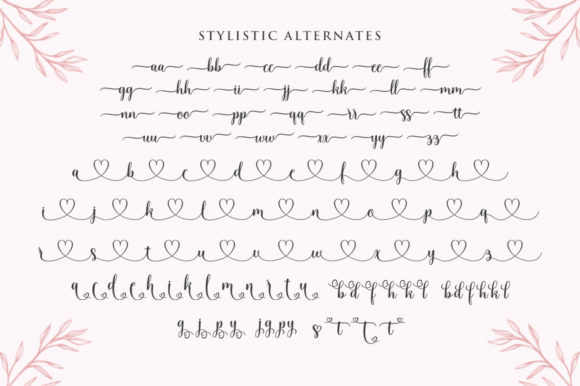 STYLISTIC ALTERNATES
aa bb cc dd ee ff
gg hh ii jj kk ll mm
nn oo pp qq rr ss tt
uu vv ww xx yy zz
a b c d e f g h
i j k l m n o p q
r s t u v w x y z
a c d e h i k l m n r t u b d f h k l b d f h k l
g j p y j g p y s t t t